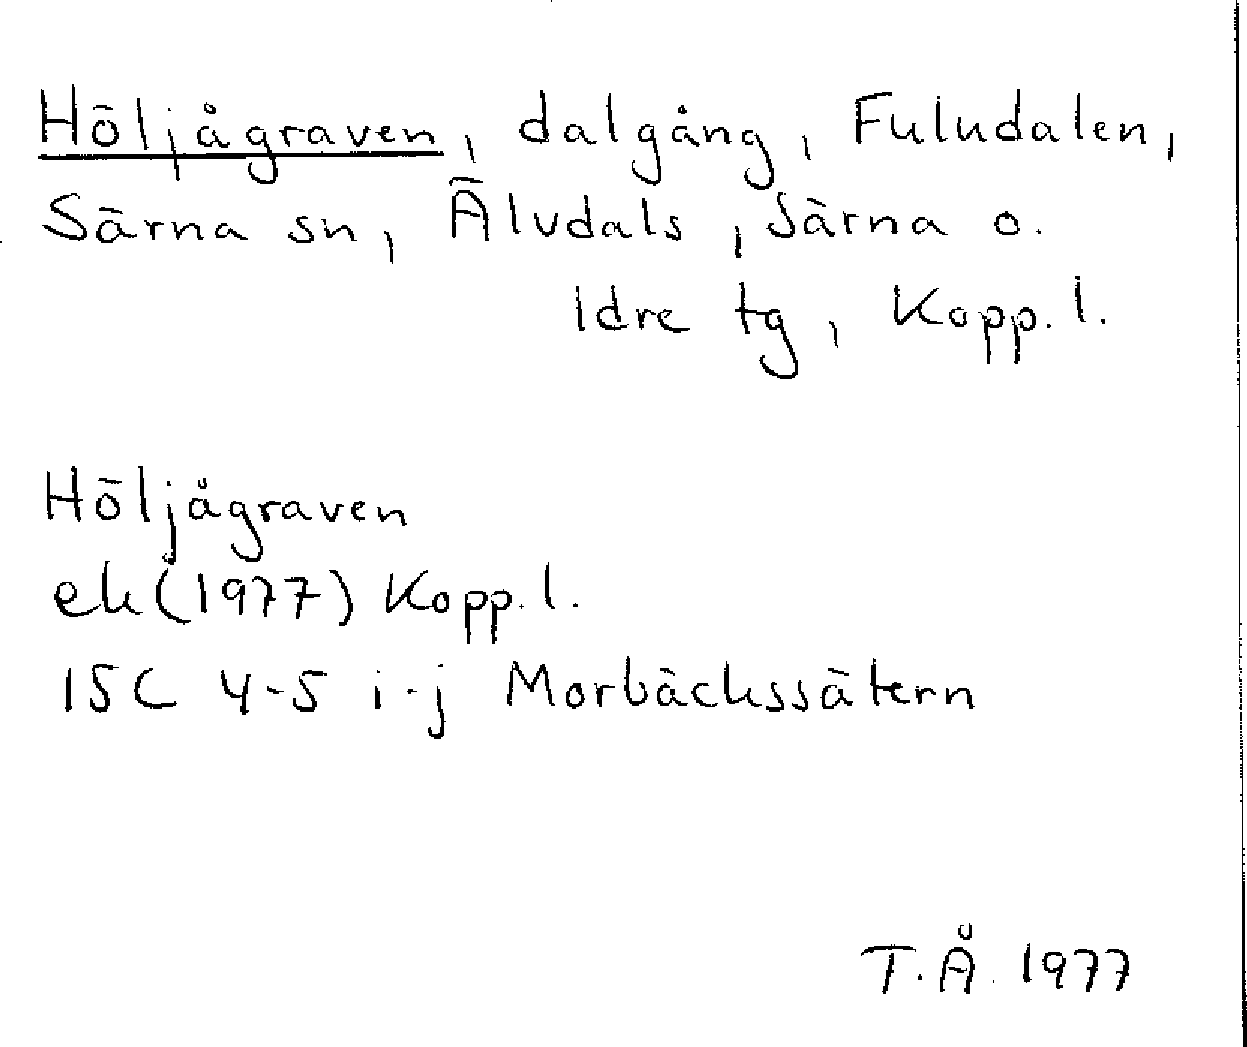 Höljågraven, dalgång, Fuludalen,
Särna sn, Älvdals, Särna o.
Idre tg, Kopp. l.
Höljågraven
ek (1977) Kopp. l.
15C 4-5 i-j Morbäckssätern
T.Å. 1977